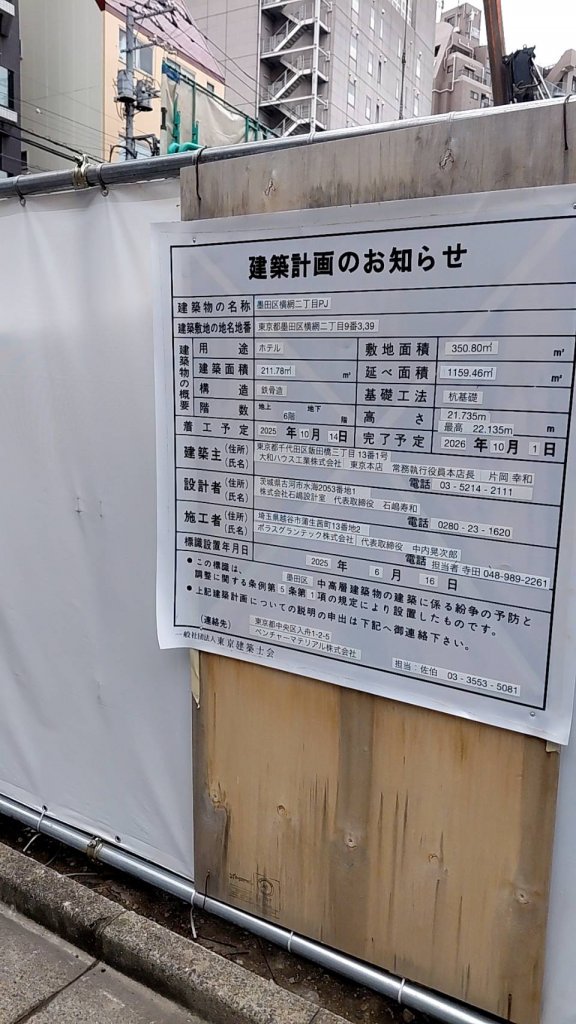 建築計画のお知らせ
建築物の名称 墨田区横網二丁目PJ
建築敷地の地名地番 東京都墨田区横網二丁目9番3,39
建築物の概要
用途 ホテル 敷地面積 350.80㎡
建築面積 211.78㎡ ㎡ 延べ面積 1159.46㎡ ㎡
構造 鉄骨造 基礎工法 杭基礎
階数 地上 6階 地下 階 高さ 21.735m 最高 22.135m m
着工予定 2025 年 10 月 14 日 完了予定 2026 年 10 月 1 日
建築主 (住所) 東京都千代田区飯田橋三丁目13番1号
(氏名) 大和ハウス工業株式会社 東京本店 常務執行役員本店長 片岡 幸和
電話 03-5214-2111
設計者 (住所) 茨城県古河市水海2053番地1
(氏名) 株式会社石嶋設計室 代表取締役 石嶋寿和
電話 0280-23-1620
施工者 (住所) 埼玉県越谷市蒲生茜町13番地2
(氏名) ポラスグランテック株式会社 代表取締役 中内晃次郎
電話 担当者 寺田 048-989-2261
標識設置年月日 2025 年 6 月 16 日
●この標識は、墨田区 中高層建築物の建築に係る紛争の予防と
調整に関する条例第5条第1項の規定により設置したものです。
●上記建築計画についての説明の申出は下記へ御連絡下さい。
(連絡先) 東京都中央区入舟1-2-5
ベンチャーマテリアル株式会社 担当:佐伯 03-3553-5081
一般社団法人東京建築士会